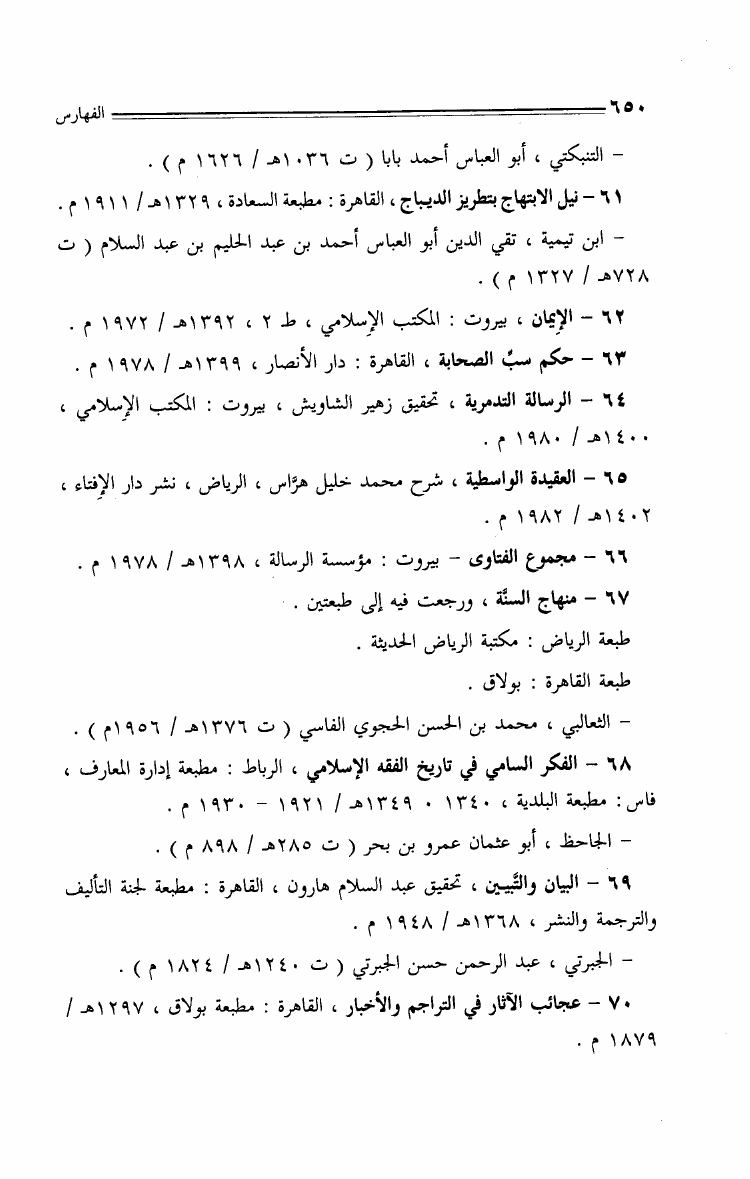 ٦٥٠ الفهارس
– التنبكتي ، أبو العباس أحمد بابا ( ت ١٠٣٦هـ / ١٦٢٦ م ) .
٦١ – نيل الابتهاج بتطريز الديباج ، القاهرة : مطبعة السعادة ، ١٣٢٩هـ / ١٩١١ م .
– ابن تيمية ، تقي الدين أبو العباس أحمد بن عبد الحليم بن عبد السلام ( ت
٧٢٨هـ / ١٣٢٧ م ) .
٦٢ – الإيمان ، بيروت : المكتب الإسلامي ، ط ٢ ، ١٣٩٢هـ / ١٩٧٢ م .
٦٣ – حكم سبٌ الصحابة ، القاهرة : دار الأنصار ، ١٣٩٩هـ / ١٩٧٨ م .
٦٤ – الرسالة التدمرية ، تحقيق زهير الشاويش ، بيروت : المكتب الإسلامي ،
١٤٠٠هـ / ١٩٨٠ م .
٦٥ – العقيدة الواسطية ، شرح محمد خليل هرَّاس ، الرياض ، نشر دار الإفتاء ،
١٤٠٢هـ / ١٩٨٢ م .
٦٦ – مجموع الفتاوى – بيروت : مؤسسة الرسالة ، ١٣٩٨هـ / ١٩٧٨ م .
٦٧ – منهاج السنَّة ، ورجعت فيه إلى طبعتين .
طبعة الرياض : مكتبة الرياض الحديثة .
طبعة القاهرة : بولاق .
– الثعالبي ، محمد بن الحسن الحجوي الفاسي ( ت ١٣٧٦هـ / ١٩٥٦م ) .
٦٨ – الفكر السامي في تاريخ الفقه الإسلامي ، الرباط : مطبعة إدارة المعارف ،
فاس : مطبعة البلدية ، ١٣٤٠ ٠ ١٣٤٩هـ / ١٩٢١ – ١٩٣٠ م .
– الجاحظ ، أبو عثمان عمرو بن بحر ( ت ٢٨٥هـ / ٨٩٨ م ) .
٦٩ – البيان والتَّبيين ، تحقيق عبد السلام هارون ، القاهرة : مطبعة لجنة التأليف
والترجمة والنشر ، ١٣٦٨هـ / ١٩٤٨ م .
– الجبرتي ، عبد الرحمن حسن الجبرتي ( ت ١٢٤٠هـ / ١٨٢٤ م ) .
٧٠ – عجائب الآثار في التراجم والأخبار ، القاهرة : مطبعة بولاق ، ١٢٩٧هـ /
١٨٧٩ م .